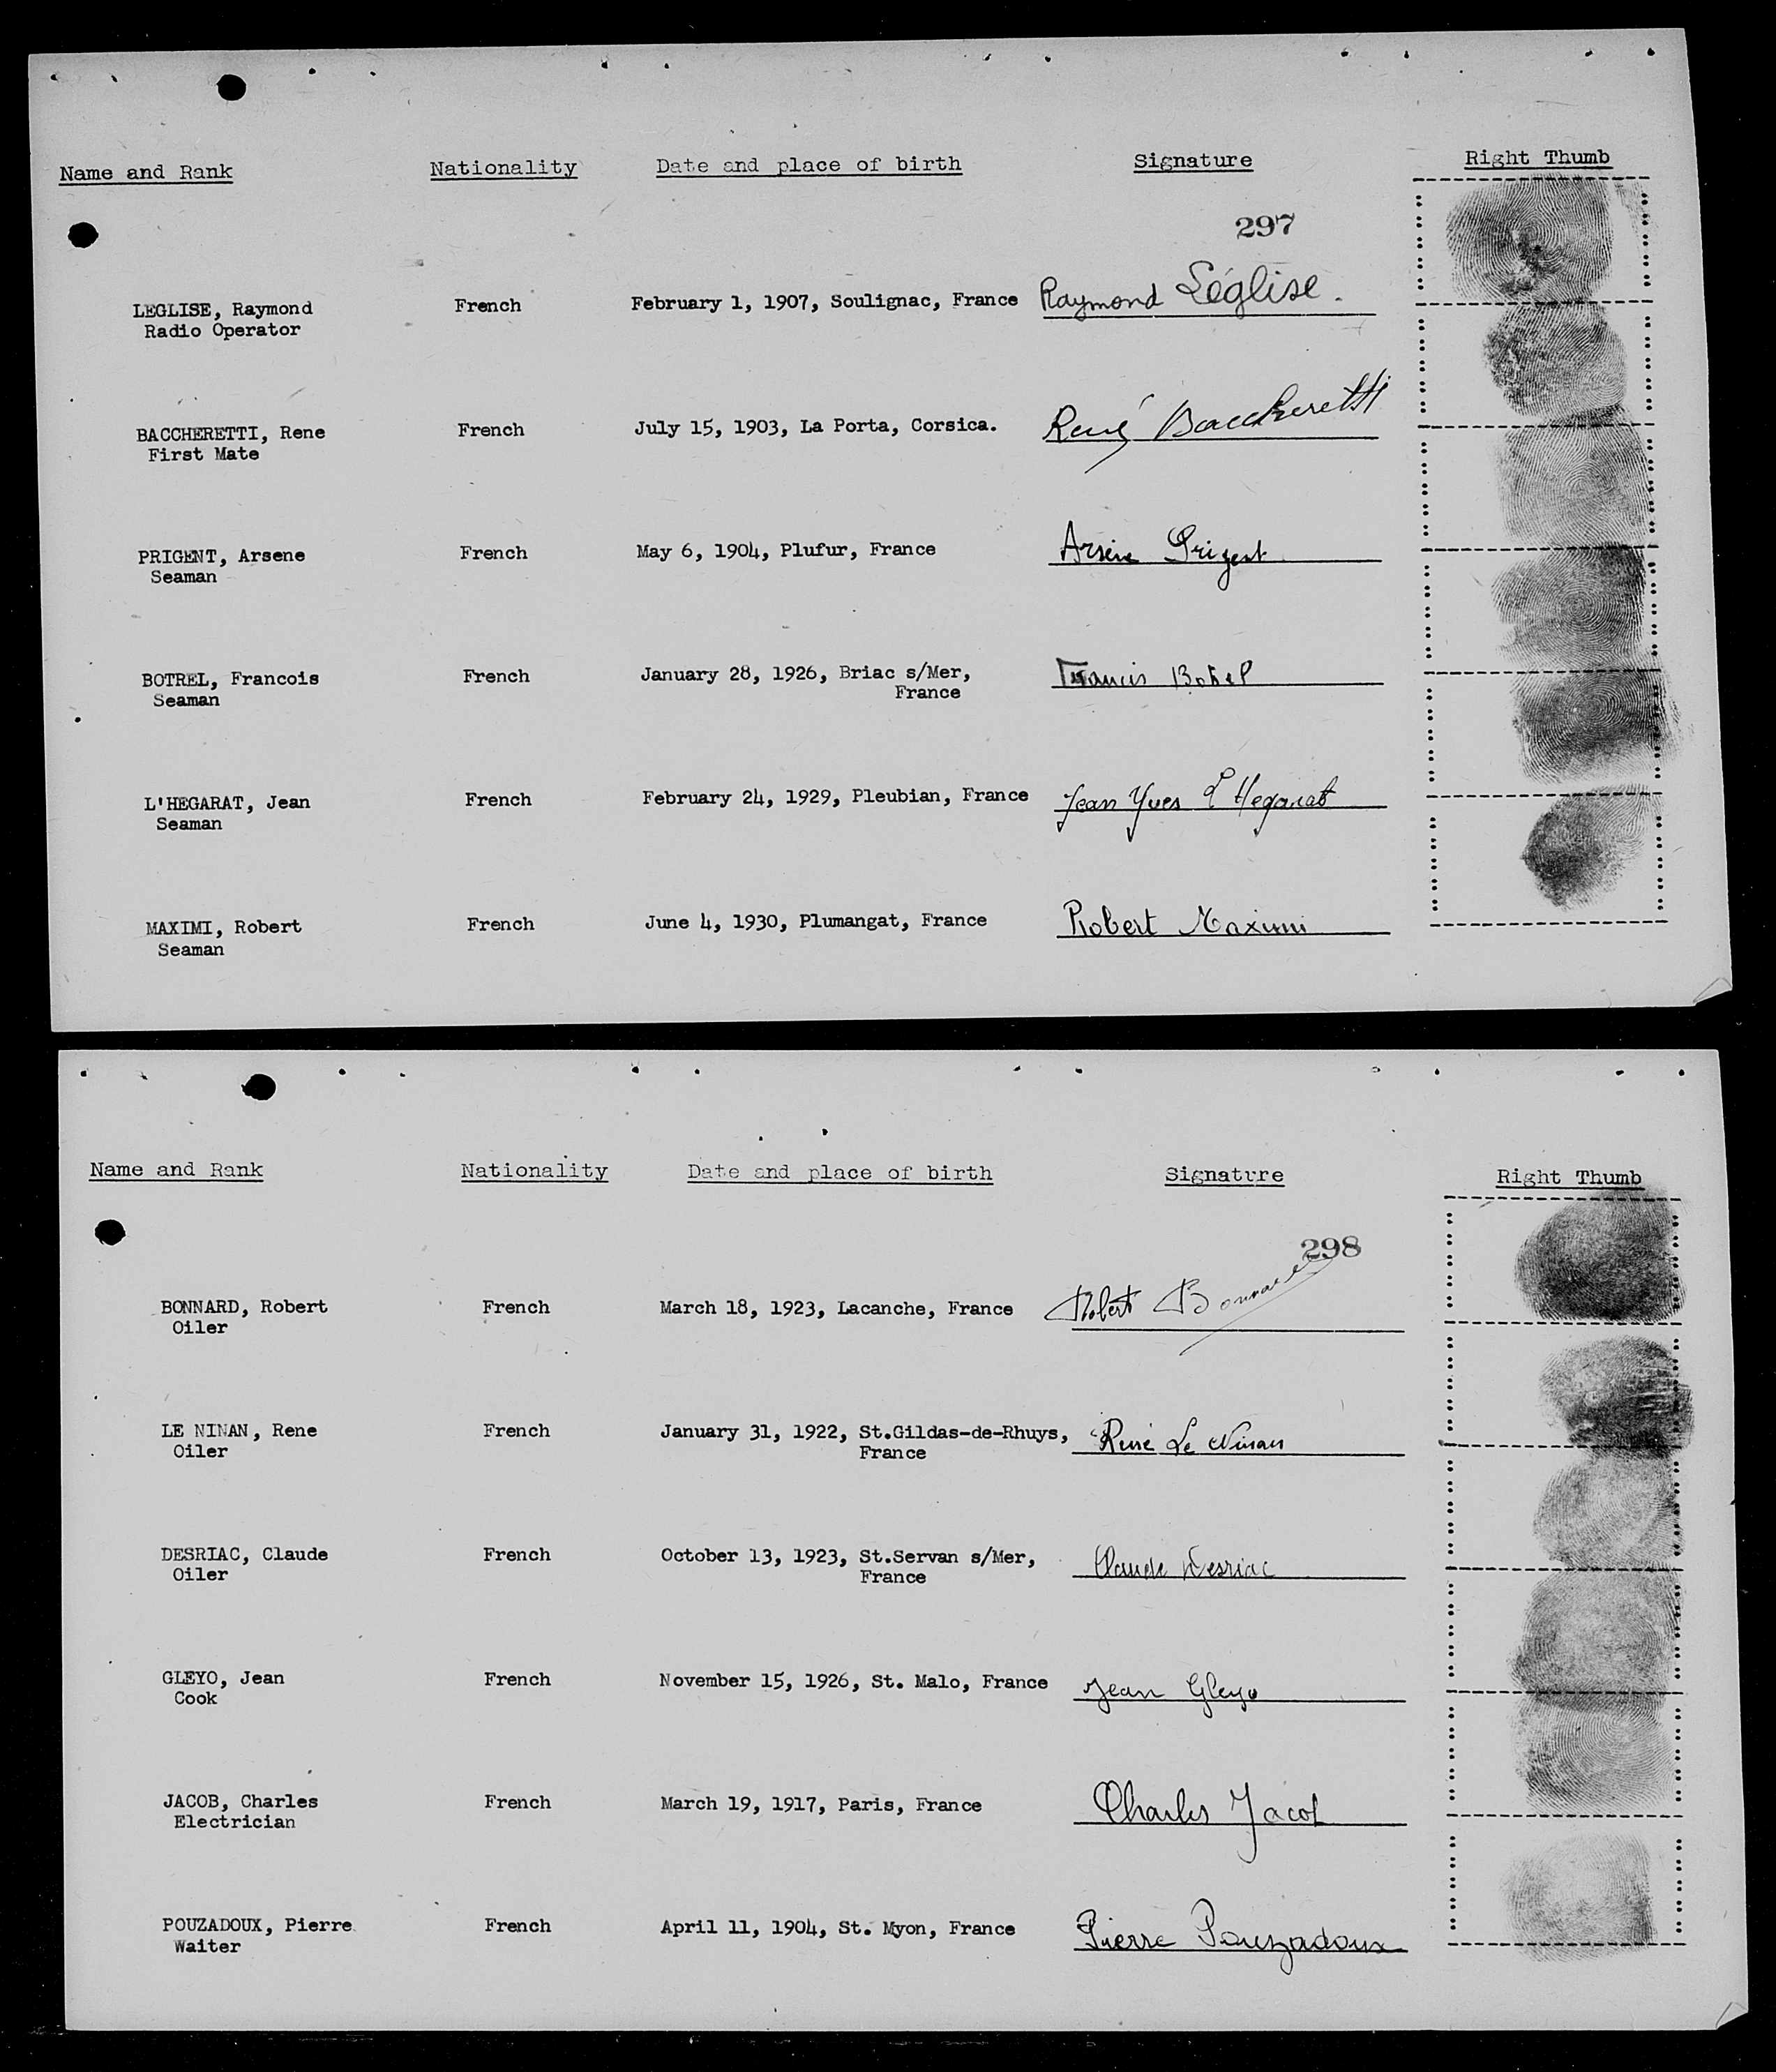 Name and Rank Nationality Date and place of birth Signature Right Thumb
297
LEGLISE, Raymond French February 1, 1907, Soulignac, France Raymond Léglise.
Radio Operator
BACCHERETTI, Rene French July 15, 1903, La Porta, Corsica. René Baccheretti
First Mate
PRIGENT, Arsene French May 6, 1904, Plufur, France Arsène Prigent
Seaman
BOTREL, Francois French January 28, 1926, Briac s/Mer, Francis Botrel
Seaman France
L'HEGARAT, Jean French February 24, 1929, Pleubian, France Jean Yves L'Hegarat
Seaman
MAXIMI, Robert French June 4, 1930, Plumangat, France Robert Maximi
Seaman
Name and Rank Nationality Date and place of birth Signature Right Thumb
298
BONNARD, Robert French March 18, 1923, Lacanche, France Robert Bonnard
Oiler
LE NINAN, Rene French January 31, 1922, St.Gildas-de-Rhuys, René Le Ninan
Oiler France
DESRIAC, Claude French October 13, 1923, St.Servan s/Mer, Claude Desriac
Oiler France
GLEYO, Jean French November 15, 1926, St. Malo, France Jean Gleyo
Cook
JACOB, Charles French March 19, 1917, Paris, France Charles Jacob
Electrician
POUZADOUX, Pierre French April 11, 1904, St. Myon, France Pierre Pouzadoux
Waiter